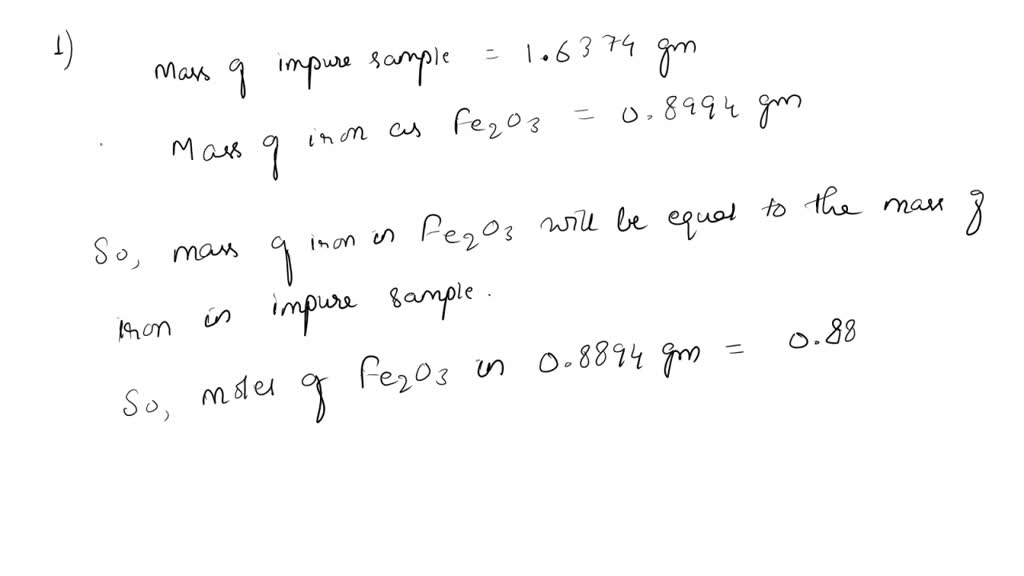 1)
Mass of impure sample = 1.6374 gm
Mass of iron as Fe2O3 = 0.8994 gm
So, mass of iron in Fe2O3 will be equal to the mass of
iron in impure sample.
So, moles of Fe2O3 in 0.8894 gm = 0.88